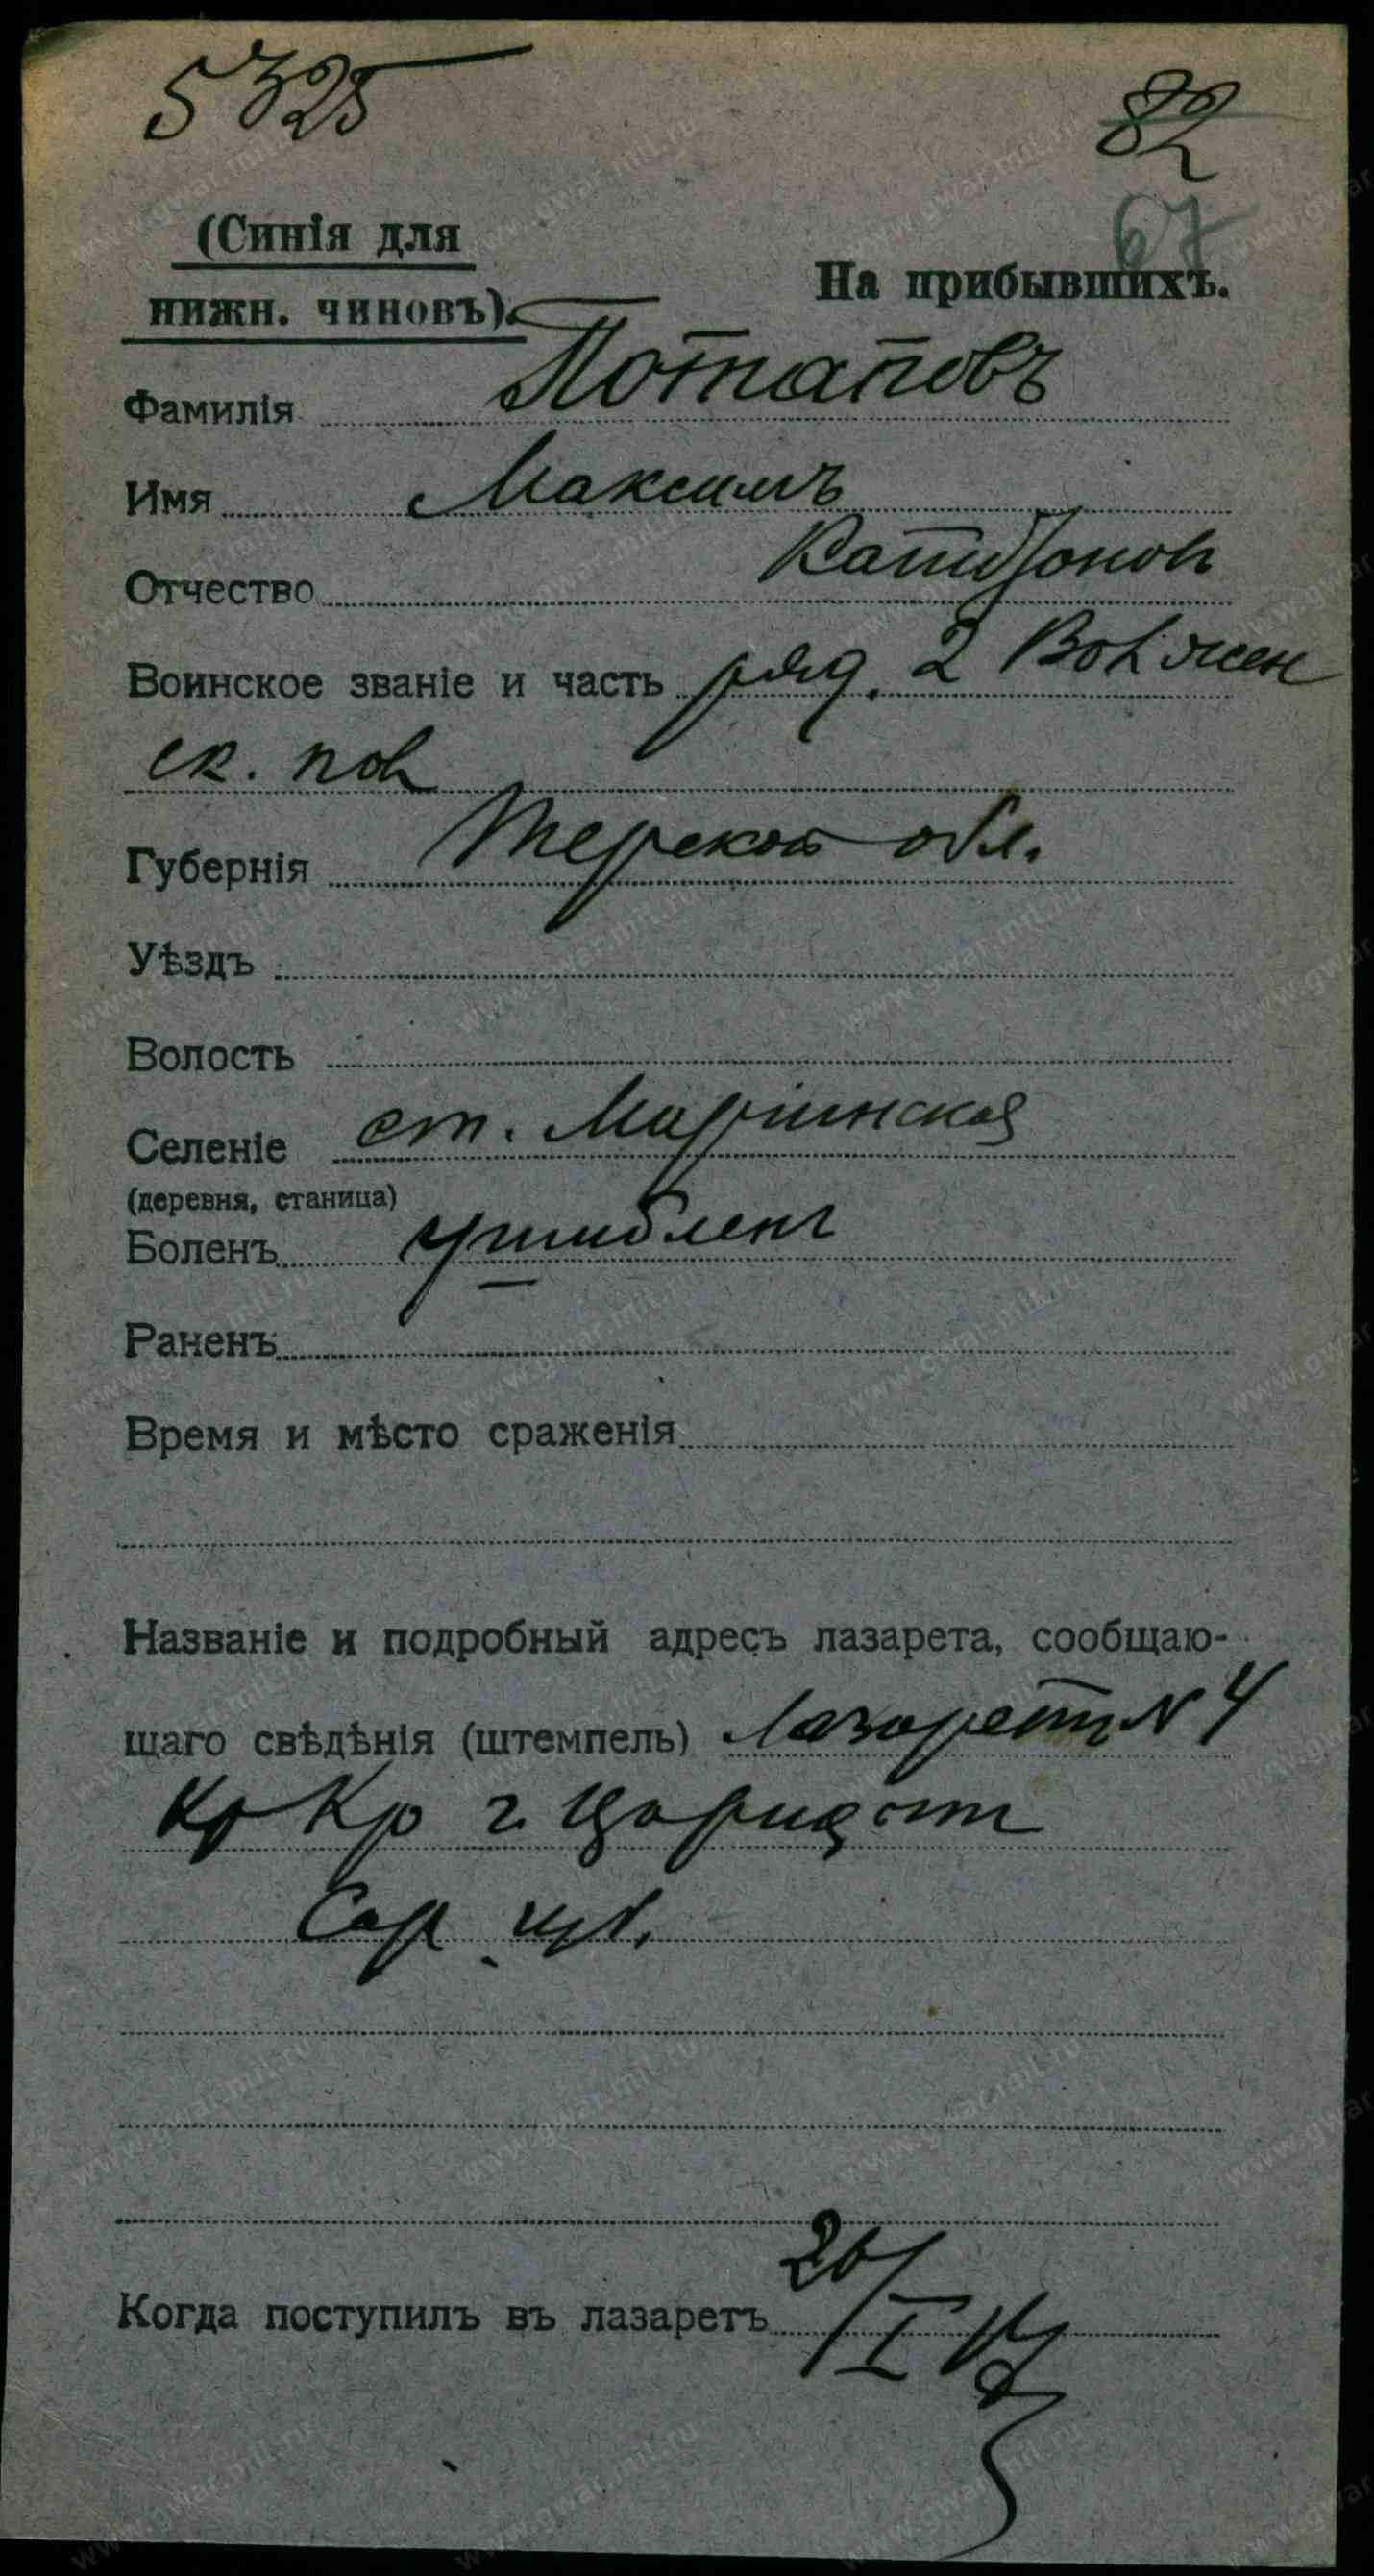 5325
82
67
(Синія для
нижн. чиновъ).
На прибывшихъ.
Фамилія Потаповъ
Имя Максимъ
Отчество
Воинское званіе и часть ряд. 2
ск. пол
Губернія Терской обл.
Уѣздъ
Волость
Селеніе ст. Марiинская
(деревня, станица)
Боленъ ушибленъ
Раненъ
Время и мѣсто сраженія
Названіе и подробный адресъ лазарета, сообщаю-
щаго свѣдѣнія (штемпель) Лазаретъ N 4
Кр Кр г. Царицынъ
Сар. губ.
Когда поступилъ въ лазаретъ 26/I
www.gwar.mil.ru